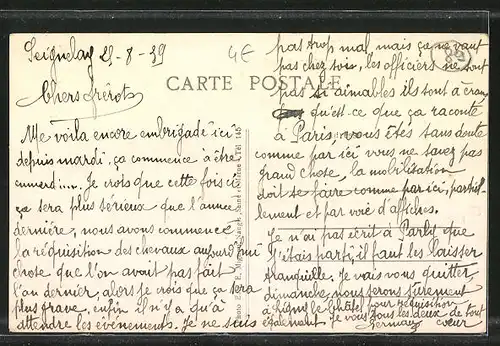 Seignelay 25-8-39
4€
CARTE POSTALE
Chers frérots
Me voilà encore embrigadé ici
depuis mardi, ça commence à être
emmerd.... Je crois que cette fois ci
ça sera plus sérieux que l'année
dernière, nous avons commencé
la réquisition des chevaux aujourd'hui
chose que l'on avait pas fait
l'an dernier, alors je crois que ça sera
plus grave, enfin il n'y a qu'à
attendre les évènements. Je ne suis
pas trop mal, mais ça ne vaut
pas chez soi, les officiers ne sont
pas si aimables ils sont à cran
qu'est-ce que ça raconte
à Paris, vous êtes sans doute
comme par ici vous ne savez pas
grand chose, la mobilisation
doit se faire comme par ici, partiel-
lement et par voie d'affiches.
Je n'ai pas écrit à Parly que
j'étais parti, il faut les laisser
tranquille. Je vais vous quitter,
dimanche, nous serons sûrement
à Ligny le Châtel pour réquisition
également Je vous tous les deux de tout
Germany cœur